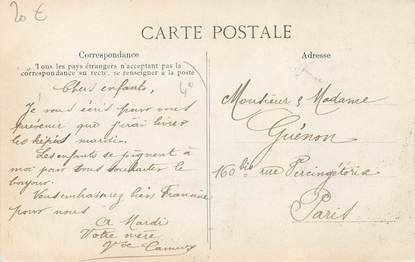 20 €
CARTE POSTALE
Correspondance
Tous les pays étrangers n'acceptant pas la
correspondance au recto, se renseigner à la poste
Adresse
Chers enfants,
Je vous écris pour vous
prévenir que j'irai livrer
les képis mardi.
Les enfants se joignent à
moi pour vous souhaiter le
bonjour.
Vous embrasserez bien Francine
pour nous
A Mardi
Votre mère
Vve
Monsieur & Madame
Guénon
160 bis rue Percingétorix
Paris